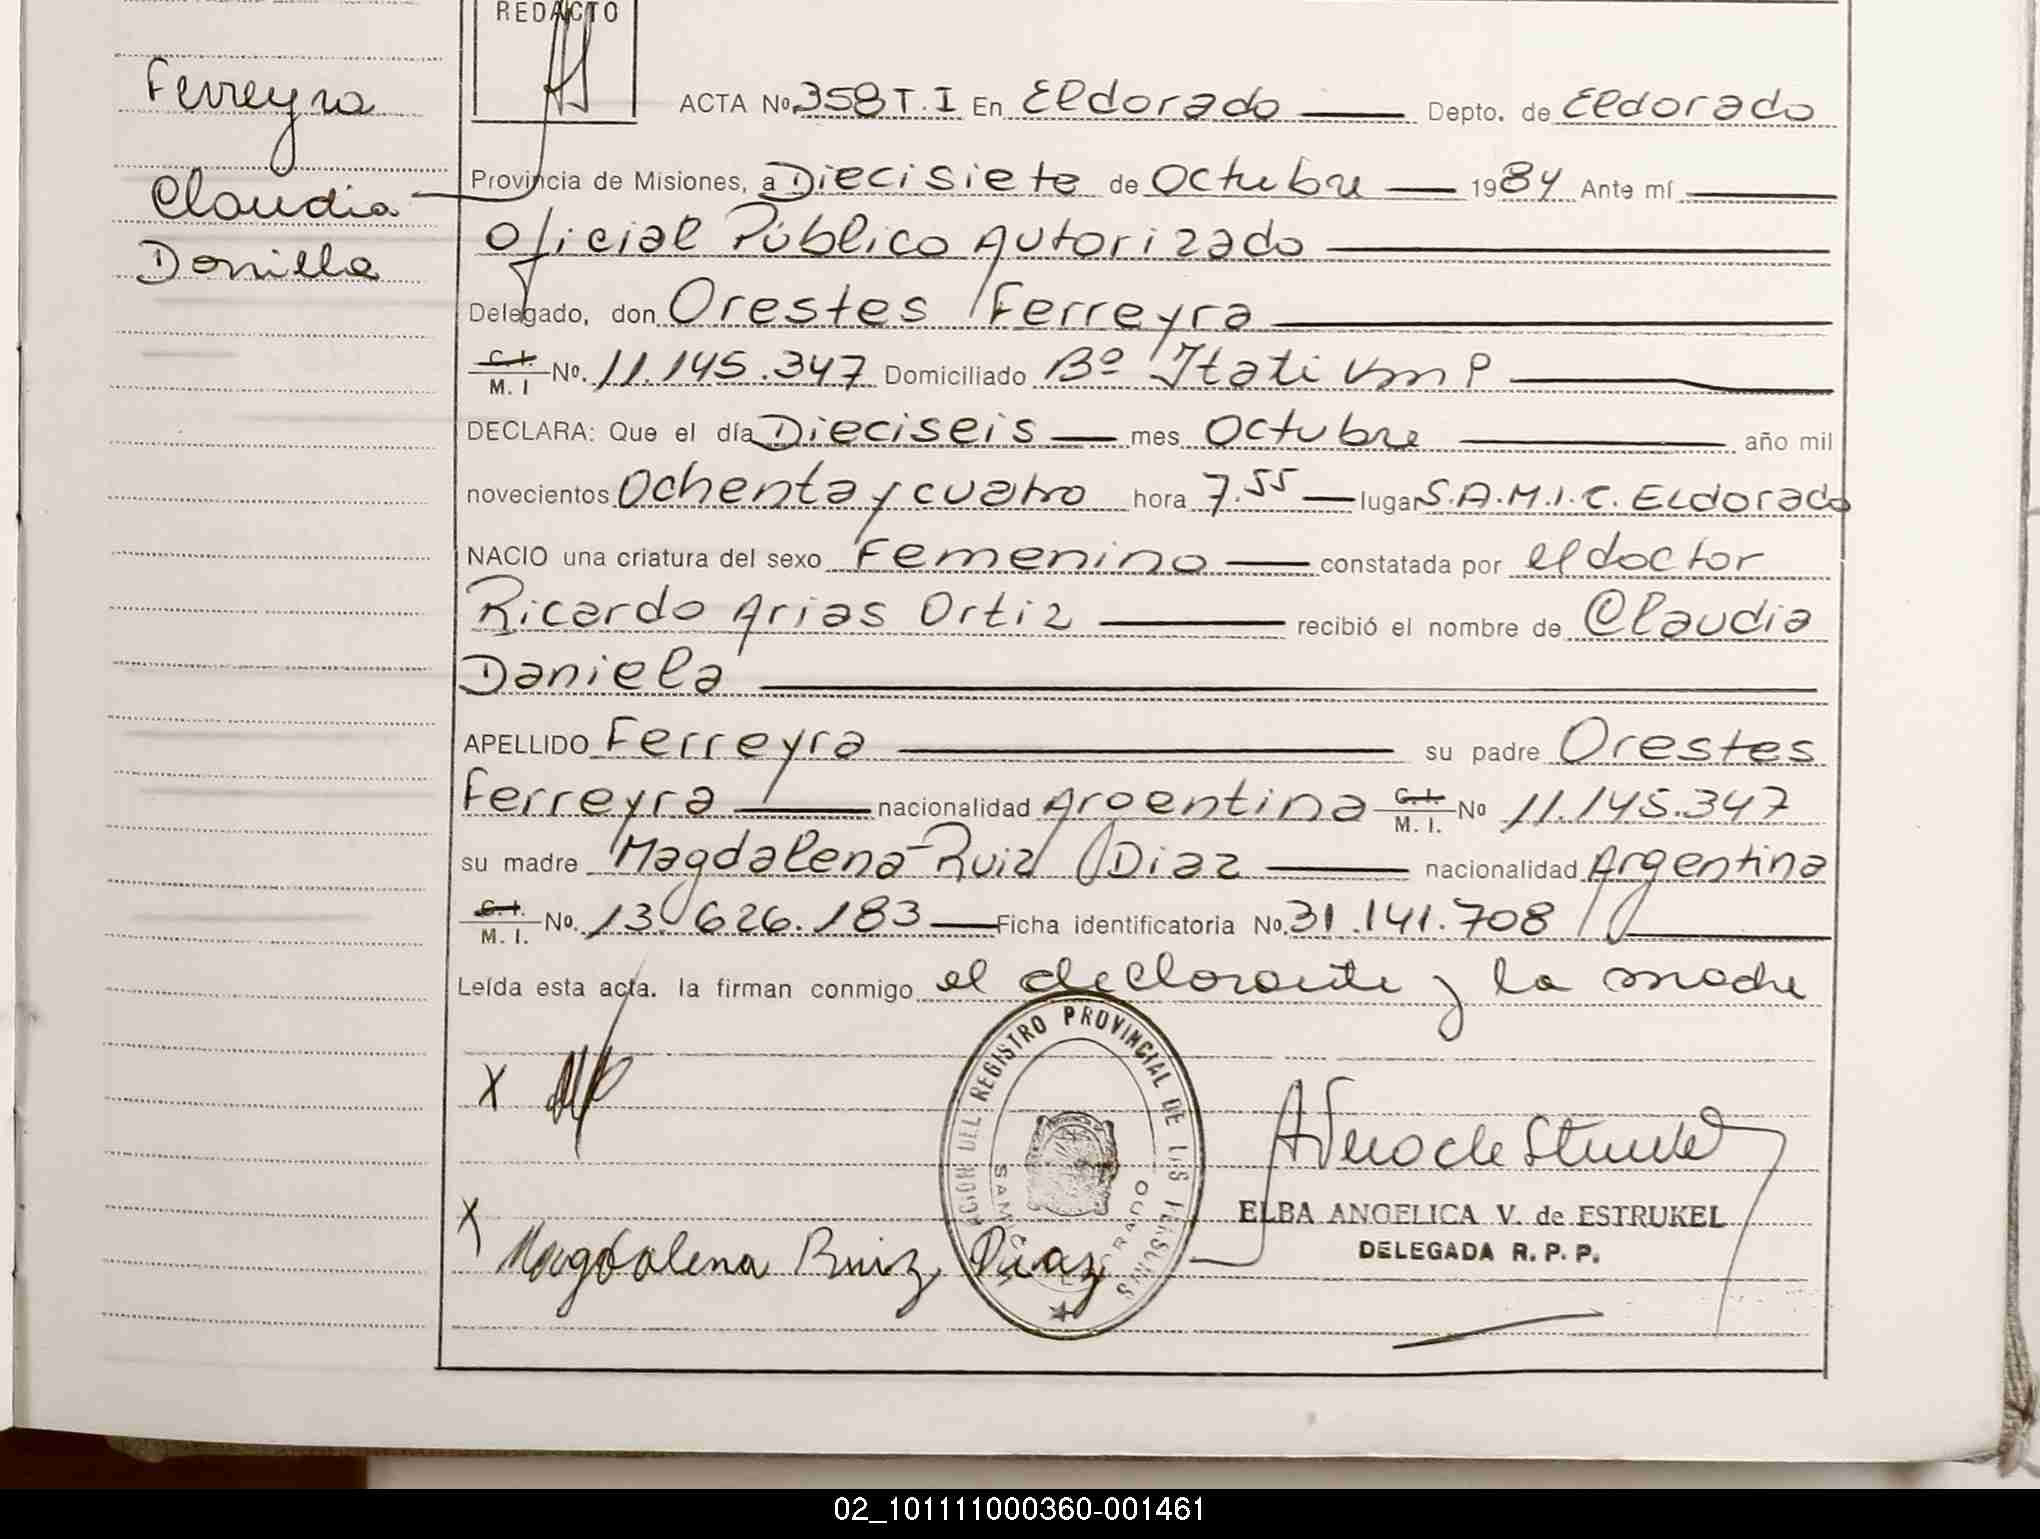 REDACTO
Ferreyra
Claudia
Daniela
ACTA No. 358 T.I En Eldorado Depto. de Eldorado
Provincia de Misiones, a Diecisiete de Octubre 1984 Ante mí
Oficial Público Autorizado
Delegado, don Orestes Ferreyra
C.I. M. I No. 11.145.347 Domiciliado Bº Itati Km 9
DECLARA: Que el día Dieciseis mes Octubre año mil
novecientos Ochenta y cuatro hora 7.55 lugar S.A.M.I.C. Eldorado
NACIO una criatura del sexo Femenino constatada por el doctor
Ricardo Arias Ortiz recibió el nombre de Claudia
Daniela
APELLIDO Ferreyra su padre Orestes
Ferreyra nacionalidad Argentina C.I. M. I. No 11.145.347
su madre Magdalena Ruiz Diaz nacionalidad Argentina
C.I. M. I. No. 13.626.183 Ficha identificatoria No. 31.141.708
Leída esta acta. la firman conmigo el declarante y la madre
X
REGISTRO PROVINCIAL DE LAS PERSONAS
X Magdalena Ruiz Diaz
ELBA ANGELICA V. de ESTRUKEL
DELEGADA R. P. P.
02_101111000360-001461